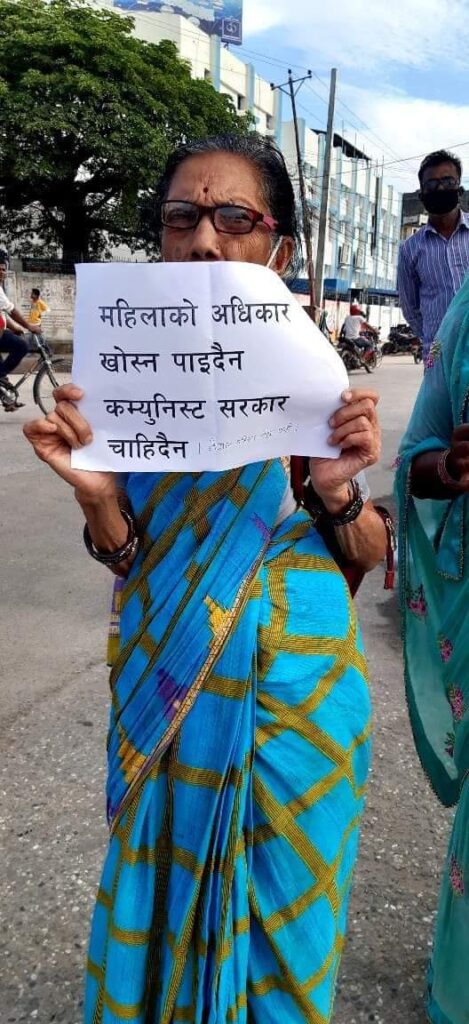 महिलाको अधिकार
खोस्न पाइदैन
कम्युनिस्ट सरकार
चाहिदैन ।